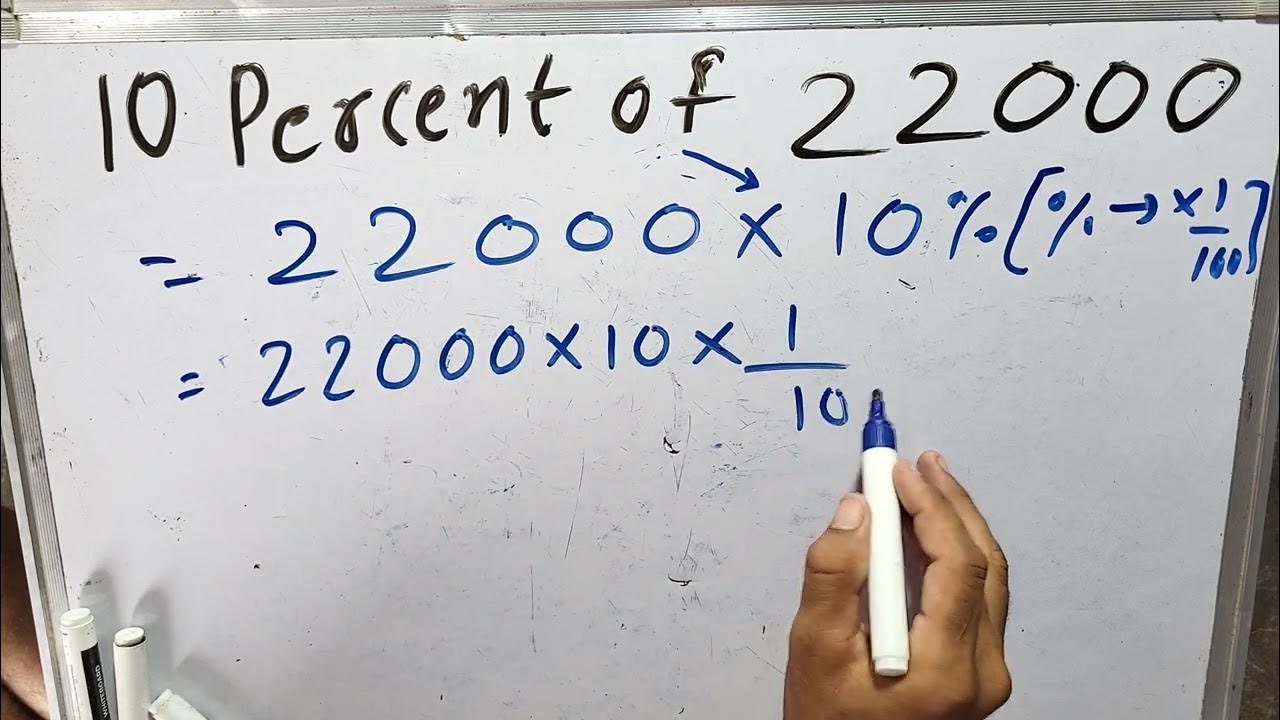 10 Percent of 22000
= 22000 × 10% [% → × 1/100]
= 22000 × 10 × 1/10
WHITEBOARD